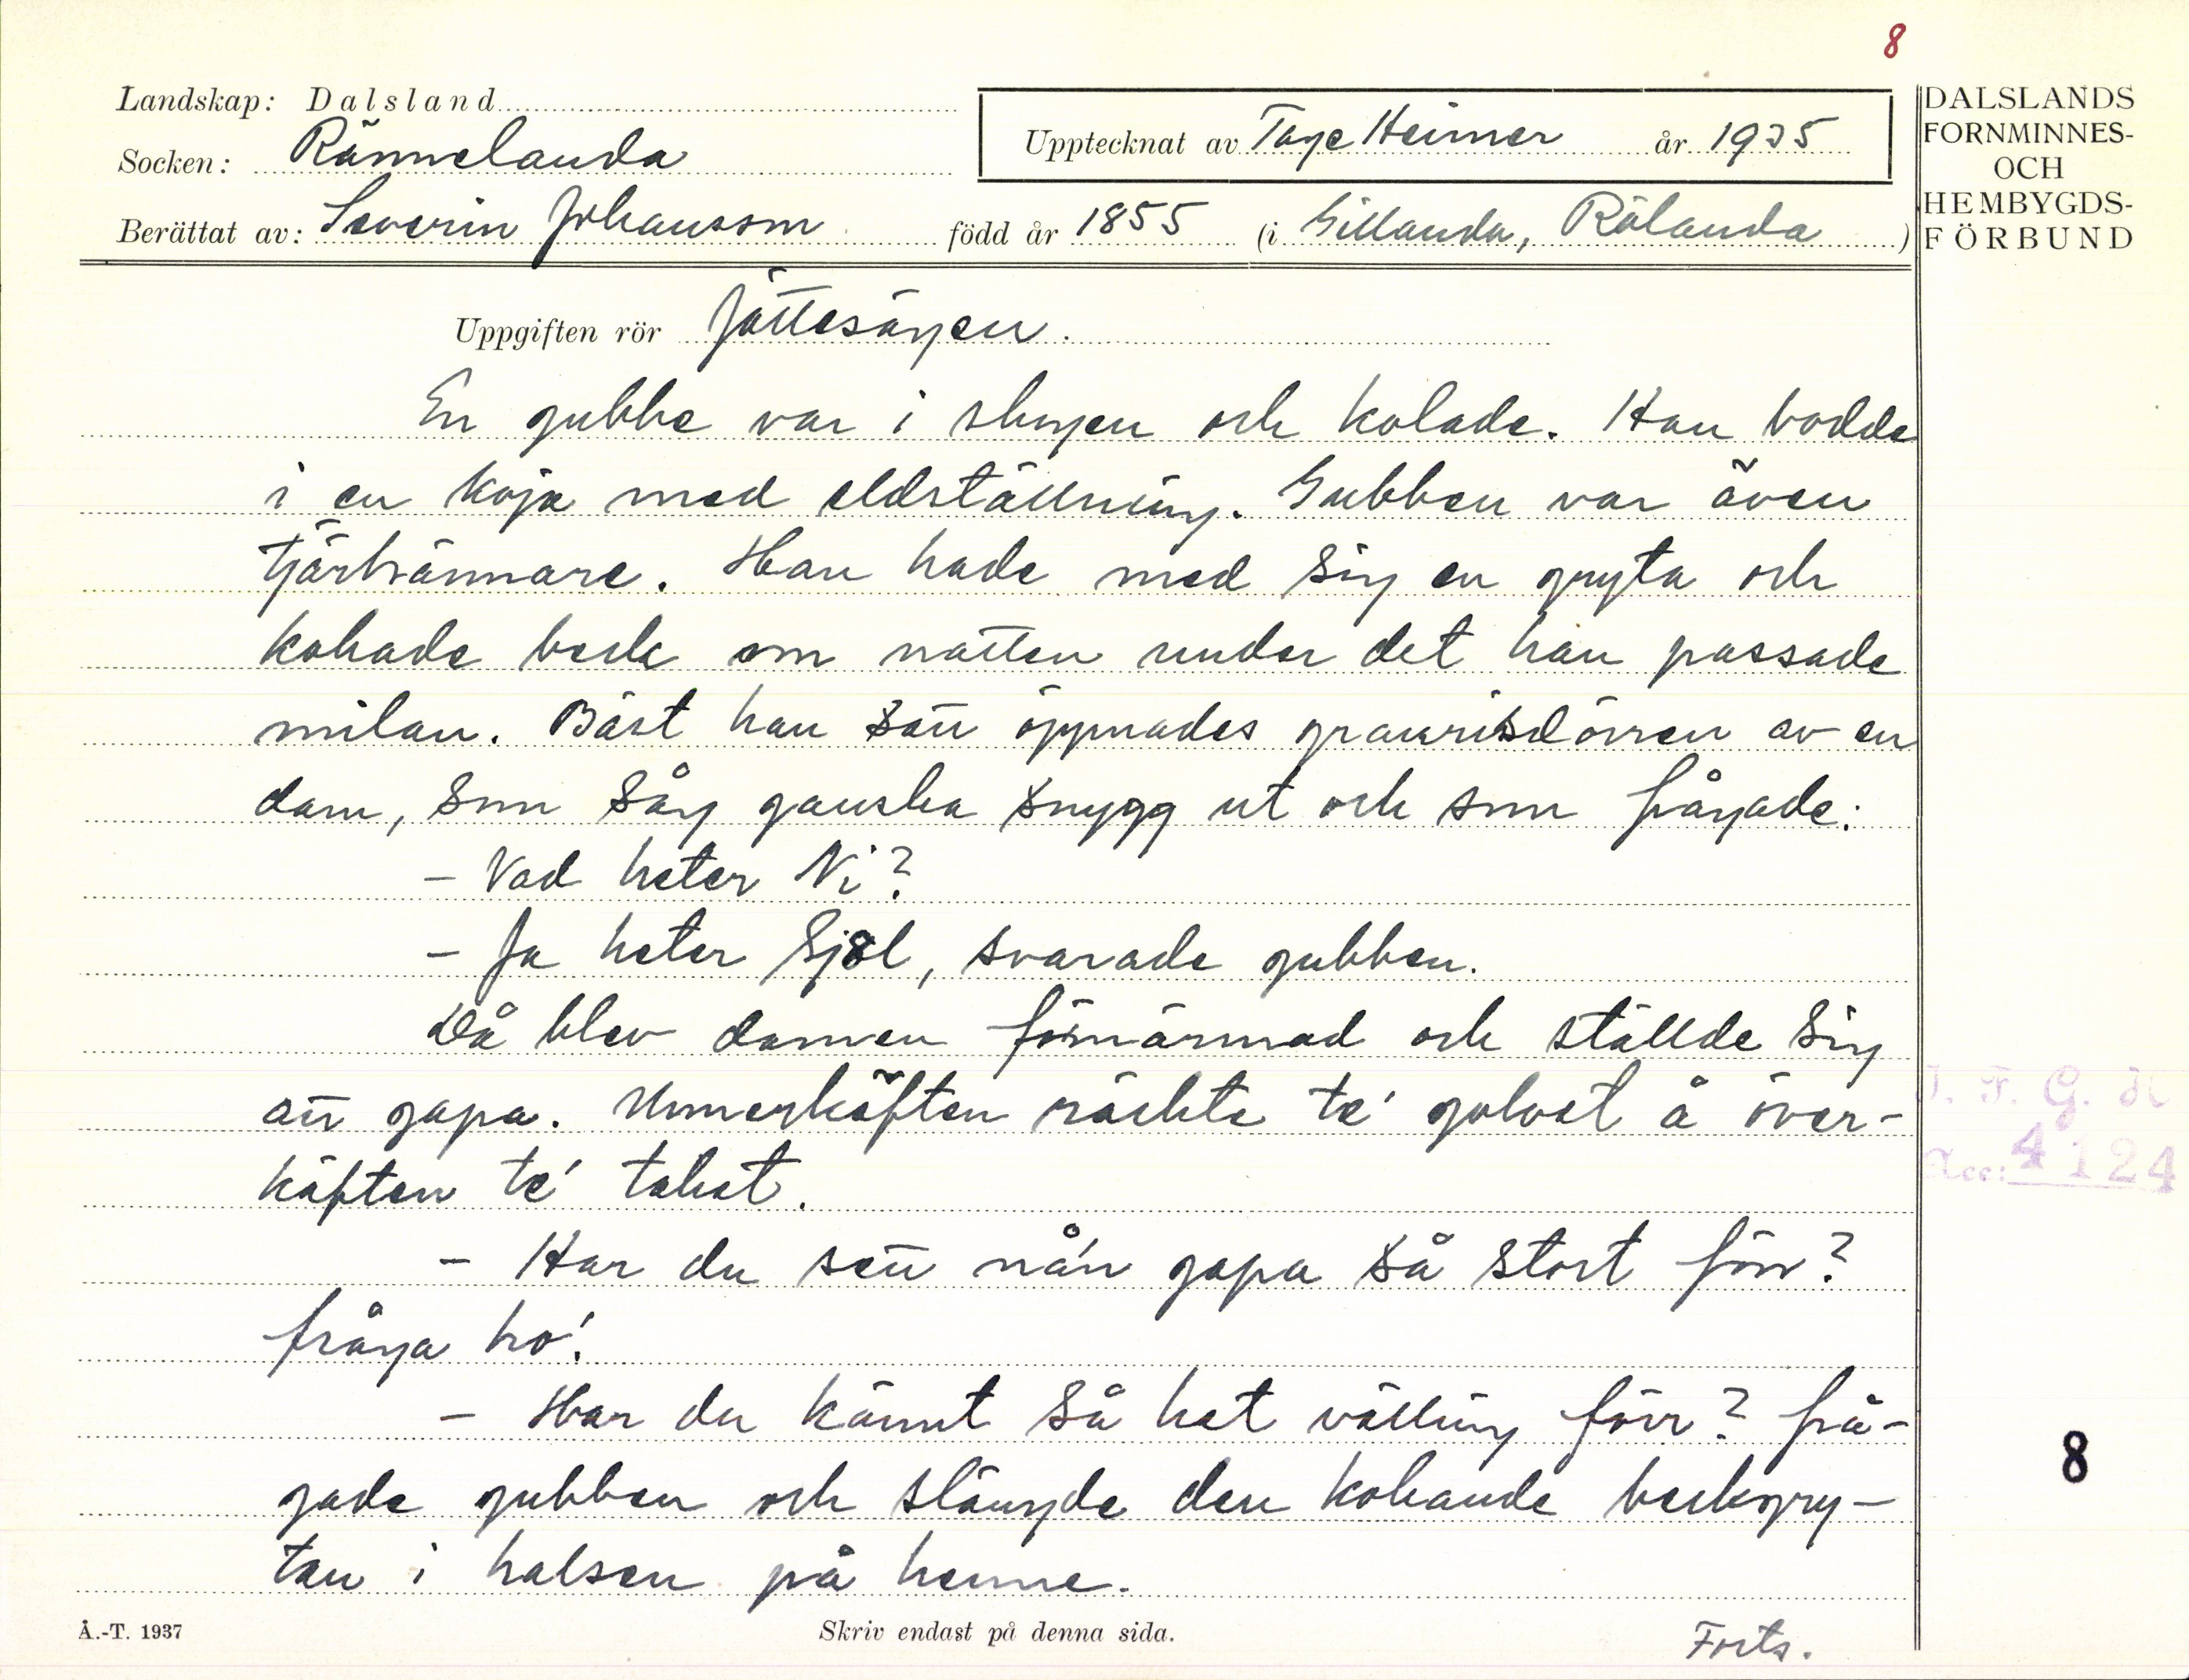 8
Landskap: Dalsland
Socken: Rännelanda
Berättat av: Severin Johansson född år 1855 (i Gillanda, Rölanda)
Upptecknat av Tage Heimer år 1935
DALSLANDS
FORNMINNES-
OCH
HEMBYGDS-
FÖRBUND
Uppgiften rör Jättesägen.
En gubbe var i skogen och kolade. Han bodde
i en koja med eldställning. Gubben var även
tjärbrännare. Han hade med sig en gryta och
kokade beck om natten under det han passade
milan. Bäst han satt öppnades granrisdörren av en
dam, som såg ganska snygg ut och som frågade:
- Vad heter Ni?
- Ja heter Sjöl, svarade gubben.
Då blev damen förnärmad och ställde sig
att gapa. Unnerkäften räckte te' golvet å över-
käften te' taket.
- Har du sett nå'n gapa så stort förr?
fråga ho'.
- Har du kännt så het välling förr? frå-
gade gubben och slängde den kokande beckgry-
tan i halsen på henne.
I. F. G. H
Acc: 4124
8
Å.-T. 1937
Skriv endast på denna sida.
Forts.